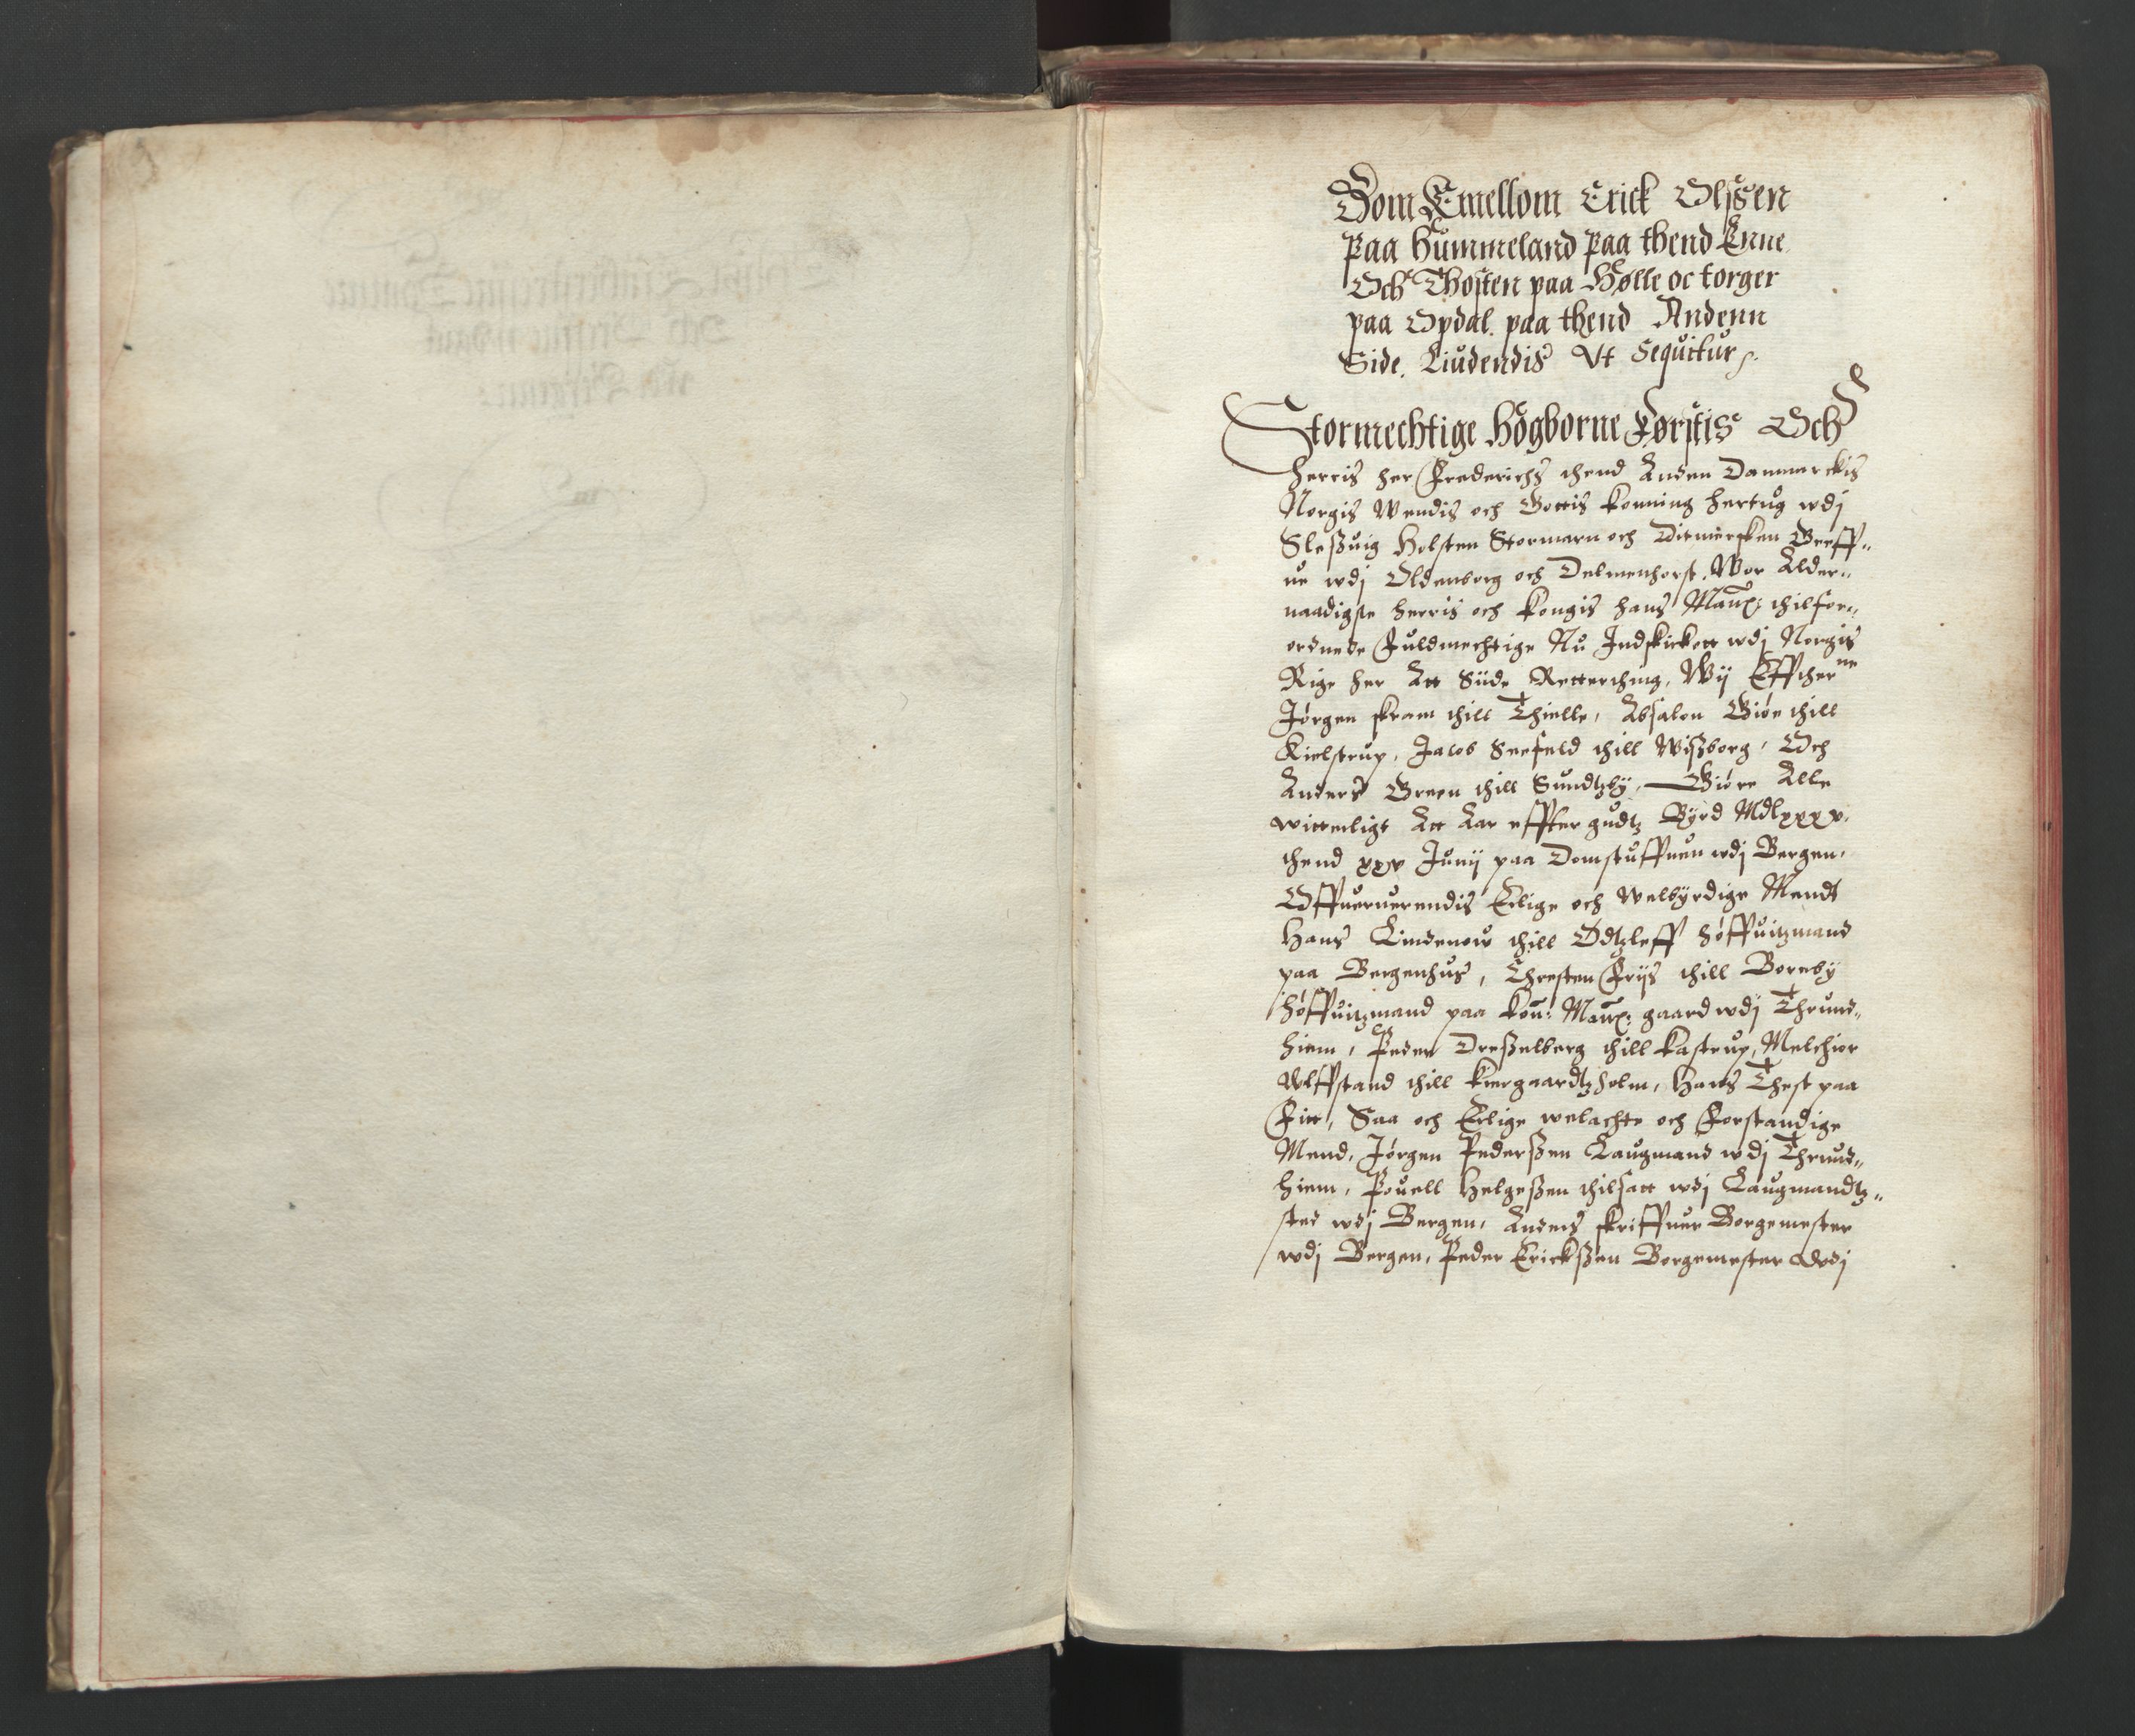 Dom Emellom Erick Olssen
paa Hummeland paa thend Enne
Och Thosten paa Hølle oc torger
paa Opdal. paa thend Andenn
Side. Liudendis Vt sequitur
Stormechtige Høgborne Førstis Och
Herris her Frederichs thend Anden Danmarckis
Norgis Wendis och Gottis konning Hertug wdj
Sleßuig Holsten Stormarn och Ditmersken Greff„
ue wdj Oldenborg och Delmenhorst, Wor Alder„
naadigste Herris och kongis hans Maytz: thilfor„
ordnede Fuldmechtige Nu Indskickett wdj Norgis
Rige her Att Side Retterthing, Wij Effther ne
Jørgen skram thill Thielle, Absalon Giøe thill
Kielstrup, Jacob Seefeld thill Wißborg, Och
Anders Green thill Sundtzby, Giøre Alle
witterligt Att Aar effther gudtz Byrd Mdlxxxv.
thend xxv Junij paa Domstuffuen wdj Bergen,
Offueruerendis Erlige och Welbyrdige Mendt
Hans Lindenow thill Ødtzleff Høffuitzmand
paa Bergenhus, Chresten Friis thill Boreby
Høffuitzmand paa kon: Maytz: gaard wdj Thrund„
hiem, Peder Dreßelberg thill Kastrup, Melchior
Wlffstand thill Kiergaardtzholm, Hans Thest paa
Fitt, Saa och Erlige welachte och Forstandige
Mend, Jørgen Pederßen Laugmand wdj Thrund„
hiem, Pouell Helgeßen thilsatt wdj Laugmandtz„
sted wdj Bergen, Anders skriffuer Borgemester
wdj Bergen, Peder Erickßen Borgemester Wdj